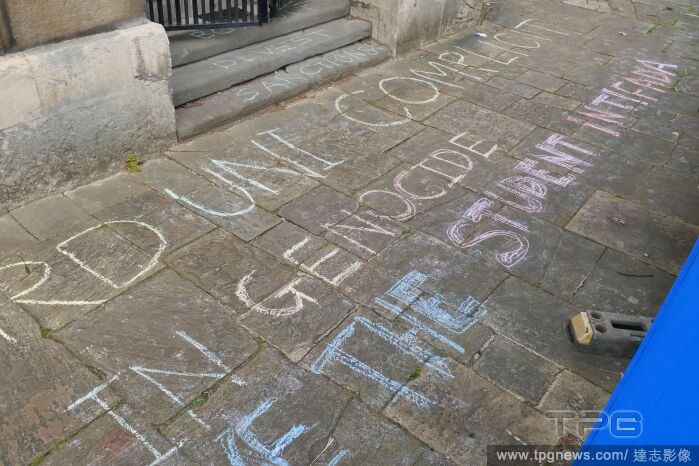 BO
DIVEST
SANCTIONS
RD UNI COMPLICIT
IN GENOCIDE
THE STUDENT INTIFADA
TPG
www.tpgnews.com/ 達志影像